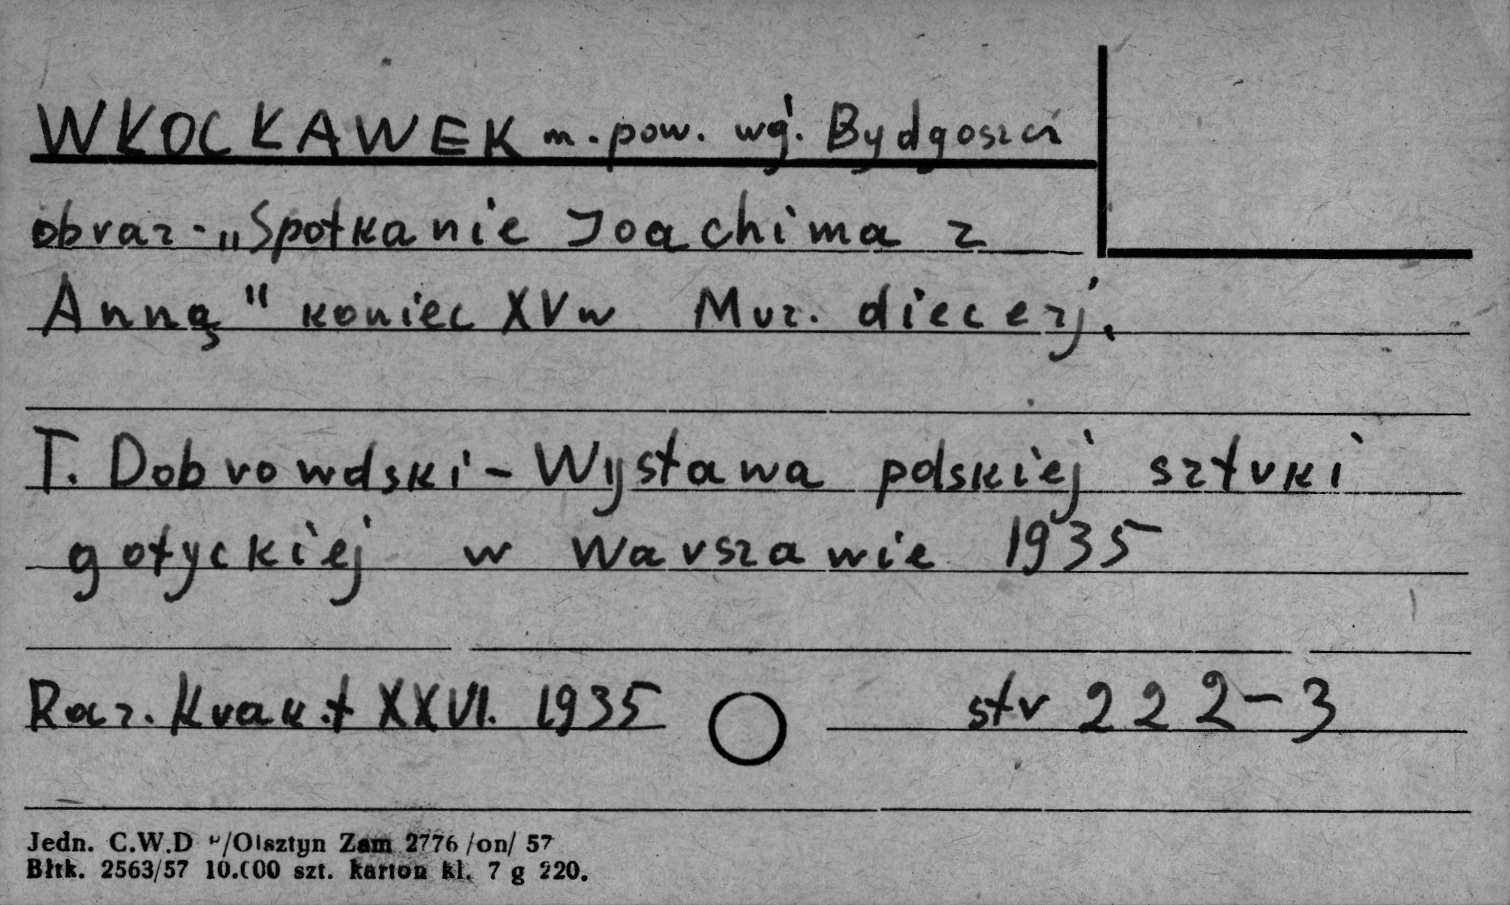 WŁOCŁAWEK m. pow. wg. Bydgoszcz
obraz - „Spotkanie Joachima z
Anną" koniec XV w Muz. diecezj.
T. Dobrowolski - Wystawa polskiej sztuki
gotyckiej w Warszawie 1935
Rocz. Krak. t XXVI. 1935 str 222-3
Jedn. C.W.D /Olsztyn Zam 2776 /on/ 57
Błtk. 2563/57 10.000 szt. karton kl. 7 g 220.